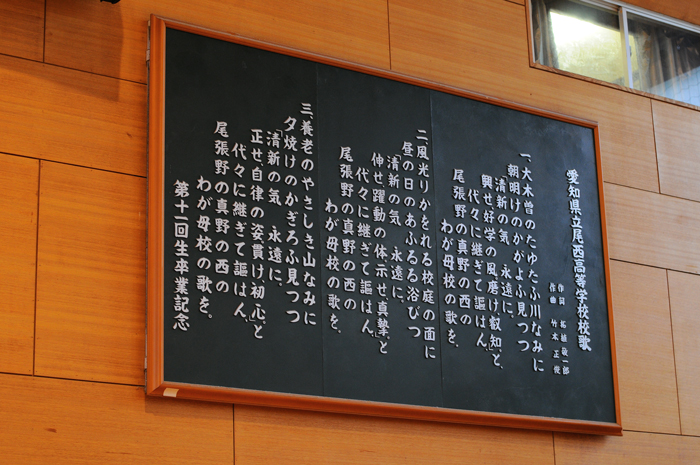 愛知県立尾西高等学校校歌
作詞
作曲 竹本正俊
一、大木曽のたゆたふ川なみに
朝明けのかがよふ見つつ
「清新の気 永遠に、
興せ、好学の風磨け、叡知」と、
代々に継ぎて謳はん、
尾張野の真野の西の
わが母校の歌を。
二、風光りかをれる校庭の面に
昼の日のあふるる浴びつ
「清新の気 永遠に、
伸せ、躍動の体示せ、真摯」と
代々に継ぎて謳はん、
尾張野の真野の西の
わが母校の歌を。
三、養老のやさしき山なみに
夕焼けのかぎろふ見つつ
「清新の気 永遠に、
正せ、自律の姿貫け、初心」と
代々に継ぎて謳はん、
尾張野の真野の西の
わが母校の歌を。
第十一回生卒業記念